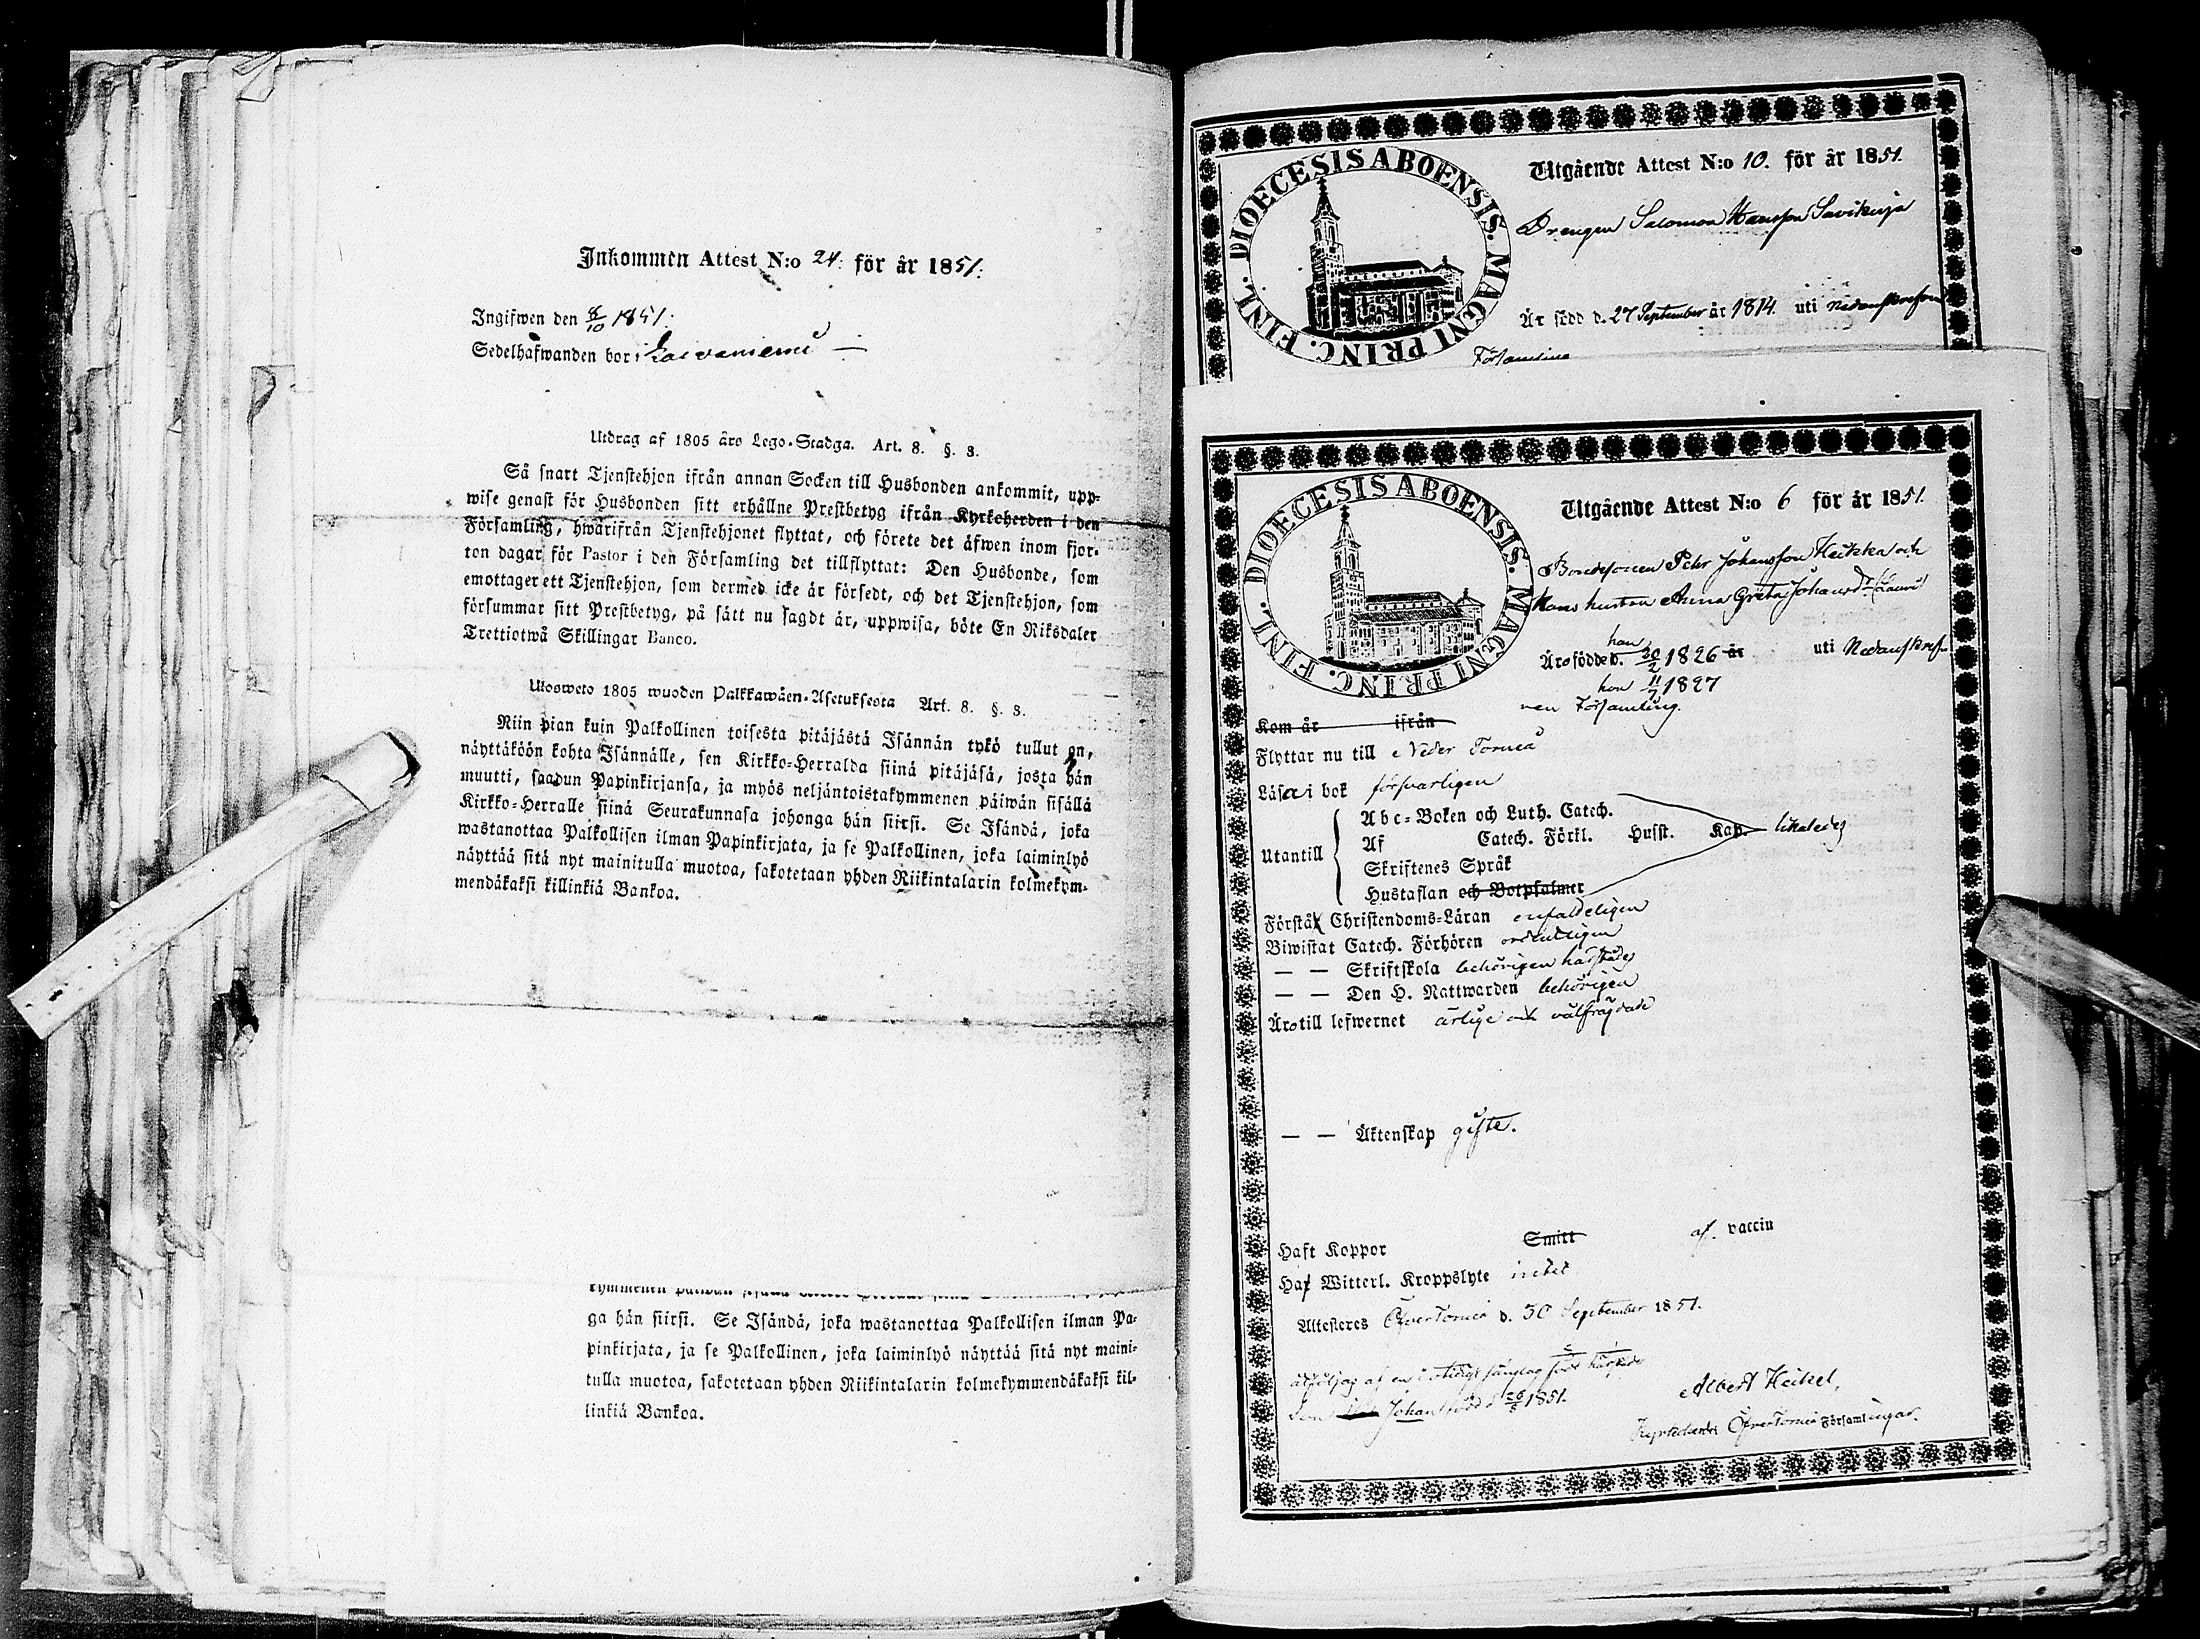 Inkommen Attest N:o 24. för år 1851.
Ingifwen den 8/10 1851.
Sedelhafwanden bor i
Utdrag af 1805 års Lego-Stadga. Art. 8. §. 3.
Så snart Tjenstehjon ifrån annan Socken till Husbonden ankommit, upp-
wise genast för Husbonden sitt erhållne Prestbetyg ifrån Kyrkoherden i den
Församling, hwarifrån Tjenstehjonet flyttat, och förete det äfwen inom fjor-
ton dagar för Pastor i den Församling det tillflyttat: Den Husbonde, som
emottager ett Tjenstehjon, som dermed icke är försedt, och det Tjenstehjon, som
försummar sitt Prestbetyg, på sätt nu sagdt är, uppwisa, böte En Riksdaler
Trettiotwå Skillingar Banco.
Ulosweto 1805 wuoden Palkkawäen-Asetuksesta Art. 8. §. 3.
Niin pian kuin Palkollinen toisesta pitäjästä Isännän tykö tullut on,
näyttäköön kohta Isännälle, sen Kirkko-Herralda siinä pitäjäsä, josta hän
muutti, saadun Papinkirjansa, ja myös neljäntoistakymmenen päiwän sisällä
Kirkko-Herralle siinä Seurakunnasa johonga hän siirsi. Se Isändä, joka
wastanottaa Palkollisen ilman Papinkirjata, ja se Palkollinen, joka laiminlyö
näyttää sitä nyt mainitulla muotoa, sakotetaan yhden Riikintalarin kolmekym-
mendäkaksi killinkiä Bankoa.
ga hän siirsi. Se Isändä, joka wastanottaa Palkollisen ilman Pa-
pinkirjata, ja se Palkollinen, joka laiminlyö näyttää sitä nyt maini-
tulla muotoa, sakotetaan yhden Riikintalarin kolmekymmendäkaksi kil-
linkiä Bankoa.
DIOECESIS ABOENSIS. MAGNI PRINC. FINL.
Utgående Attest N:o 10. för år 1851.
Drengen Salomon Hansson Savikuja
Är född d. 27 September år 1814. uti nedanskrefne
Församling
DIOECESIS ABOENSIS. MAGNI PRINC. FINL.
Utgående Attest N:o 6 för år 1851.
Bondesonen Pehr Johansson Heikka och
Hans hustru Anna Greta Johansd:r
han
Äro födde d. 20/2 1826 år uti Nedanskref-
hon 11/7 1827
nen Församling.
Kom år ifrån
Flyttar nu till Neder Torneå
Läsa i bok försvarligen
Utantill
Abc-Boken och Luth. Catech.
Af Catech. Förkl. Husst. Kap. likaledes
Skriftenes Språk
Hustaflan och Botpsalmer
Förstå Christendoms-Läran enfaldeligen
Biwistat Catech. Förhören ordentligen
— — Skriftskola behörigen härstädes
— — Den H. Nattwarden behörigen
Äro till lefwernet ärlige och välfrägdade
— — Äktenskap gifte.
Haft Koppor Smitt af. vaccin
Haf Witterl. Kroppslyte intet
Attesteres ÖfverTorneå d. 30 September 1851.
åtföljas af en
son Johan född d. 26/8 1851.
Albert Heikel,
Kyrkoherde ÖfverTorneå Församlingar.